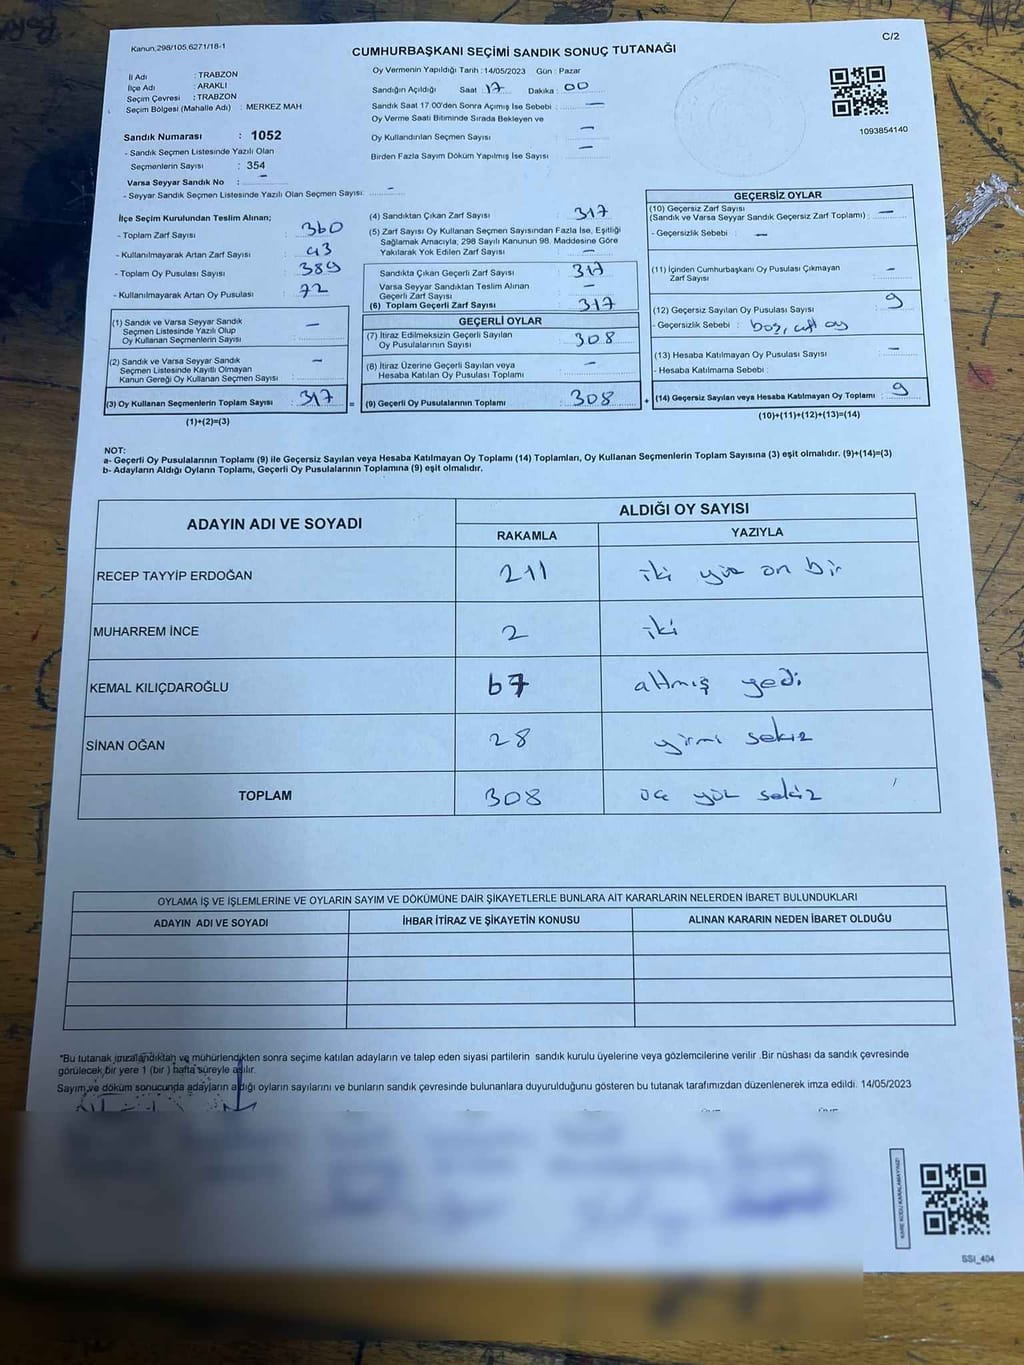 Kanun,298/105,6271/18-1
C/2
CUMHURBAŞKANI SEÇİMİ SANDIK SONUÇ TUTANAĞI
İl Adı : TRABZON
İlçe Adı : ARAKLI
Seçim Çevresi : TRABZON
Seçim Bölgesi (Mahalle Adı) : MERKEZ MAH
Sandık Numarası : 1052
- Sandık Seçmen Listesinde Yazılı Olan
Seçmenlerin Sayısı : 354
Varsa Seyyar Sandık No : -
- Seyyar Sandık Seçmen Listesinde Yazılı Olan Seçmen Sayısı: -
Oy Vermenin Yapıldığı Tarih :14/05/2023 Gün : Pazar
Sandığın Açıldığı Saat 17 Dakika : 00
Sandık Saat 17:00'den Sonra Açımış İse Sebebi : -
Oy Verme Saati Bitiminde Sırada Bekleyen ve
Oy Kullandırılan Seçmen Sayısı : -
Birden Fazla Sayım Döküm Yapılmış İse Sayısı : -
1093854140
İlçe Seçim Kurulundan Teslim Alınan;
- Toplam Zarf Sayısı : 360
- Kullanılmayarak Artan Zarf Sayısı : 43
- Toplam Oy Pusulası Sayısı : 389
- Kullanılmayarak Artan Oy Pusulası : 72
(1) Sandık ve Varsa Seyyar Sandık
Seçmen Listesinde Yazılı Olup
Oy Kullanan Seçmenlerin Sayısı : -
(2) Sandık ve Varsa Seyyar Sandık
Seçmen Listesinde Kayıtlı Olmayan
Kanun Gereği Oy Kullanan Seçmen Sayısı : -
(3) Oy Kullanan Seçmenlerin Toplam Sayısı : 317 =
(1)+(2)=(3)
(4) Sandıktan Çıkan Zarf Sayısı : 317
(5) Zarf Sayısı Oy Kullanan Seçmen Sayısından Fazla İse, Eşitliği
Sağlamak Amacıyla; 298 Sayılı Kanunun 98. Maddesine Göre
Yakılarak Yok Edilen Zarf Sayısı : -
Sandıkta Çıkan Geçerli Zarf Sayısı : 317
Varsa Seyyar Sandıktan Teslim Alınan
Geçerli Zarf Sayısı : -
(6) Toplam Geçerli Zarf Sayısı : 317
GEÇERLİ OYLAR
(7) İtiraz Edilmeksizin Geçerli Sayılan
Oy Pusulalarının Sayısı : 308
(8) İtiraz Üzerine Geçerli Sayılan veya
Hesaba Katılan Oy Pusulası Toplamı : -
(9) Geçerli Oy Pusulalarının Toplamı : 308 +
GEÇERSİZ OYLAR
(10) Geçersiz Zarf Sayısı
(Sandık ve Varsa Seyyar Sandık Geçersiz Zarf Toplamı) : -
- Geçersizlik Sebebi : -
(11) İçinden Cumhurbaşkanı Oy Pusulası Çıkmayan
Zarf Sayısı : -
(12) Geçersiz Sayılan Oy Pusulası Sayısı : 9
- Geçersizlik Sebebi : boş, çift oy
(13) Hesaba Katılmayan Oy Pusulası Sayısı : -
- Hesaba Katılmama Sebebi :
(14) Geçersiz Sayılan veya Hesaba Katılmayan Oy Toplamı : 9
(10)+(11)+(12)+(13)=(14)
NOT:
a- Geçerli Oy Pusulalarının Toplamı (9) ile Geçersiz Sayılan veya Hesaba Katılmayan Oy Toplamı (14) Toplamları, Oy Kullanan Seçmenlerin Toplam Sayısına (3) eşit olmalıdır. (9)+(14)=(3)
b- Adayların Aldığı Oyların Toplamı, Geçerli Oy Pusulalarının Toplamına (9) eşit olmalıdır.
ADAYIN ADI VE SOYADI ALDIĞI OY SAYISI
RAKAMLA YAZIYLA
RECEP TAYYİP ERDOĞAN 211 iki yüz on bir
MUHARREM İNCE 2 iki
KEMAL KILIÇDAROĞLU 67 altmış yedi
SİNAN OĞAN 28 yirmi sekiz
TOPLAM 308 üç yüz sekiz
OYLAMA İŞ VE İŞLEMLERİNE VE OYLARIN SAYIM VE DÖKÜMÜNE DAİR ŞİKAYETLERLE BUNLARA AİT KARARLARIN NELERDEN İBARET BULUNDUKLARI
ADAYIN ADI VE SOYADI İHBAR İTİRAZ VE ŞİKAYETİN KONUSU ALINAN KARARIN NEDEN İBARET OLDUĞU
*Bu tutanak imzalandıktan ve mühürlendikten sonra seçime katılan adayların ve talep eden siyasi partilerin sandık kurulu üyelerine veya gözlemcilerine verilir .Bir nüshası da sandık çevresinde
görülecek bir yere 1 (bir ) hafta süreyle asılır.
Sayım ve döküm sonucunda adayların aldığı oyların sayılarını ve bunların sandık çevresinde bulunanlara duyurulduğunu gösteren bu tutanak tarafımızdan düzenlenerek imza edildi. 14/05/2023
KARE KODU KARALAMAYINIZ!
SSI_404